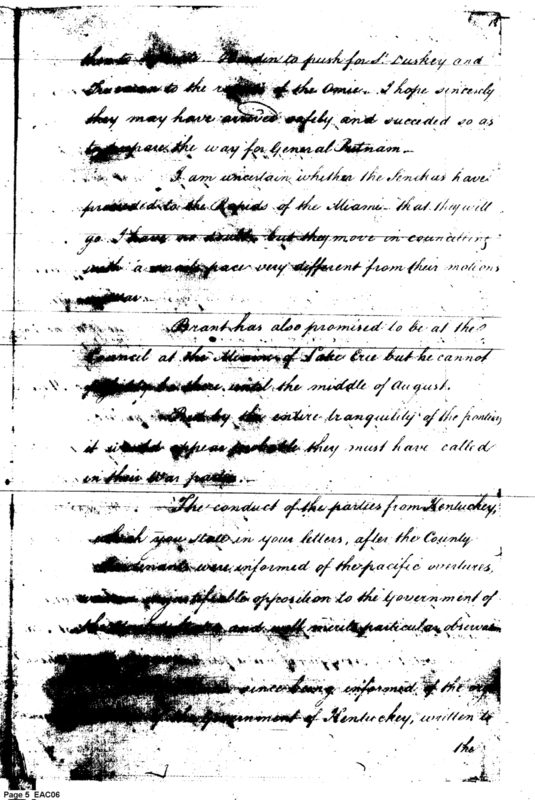 to push for St. Duskey and
to the of the Omee. I hope sincerely
they may have arrived safely and succeded so as
to prepare the way for General Putnam.—
I am uncertain whether the Senekas have
proceeded to the Rapids of the Miami— that they will
go I have no doubt, but they move in councilling
with a pace very different from their motions
Brant has also promised to be at the
Council at the Miami of Lake Erie but he cannot
possibly be there until the middle of August.
But by the entire tranquility of the frontiers
it would appear probable they must have called
in their War parties.—
The conduct of the parties from Kentuckey,
which you state in your letters, after the County
Lieutenants were informed of the pacific overtures,
opposition to the Government of
the and well merits particular observa
since being informed of the
of the Government of Kentuckey, written to
the
Page 5 EAC06